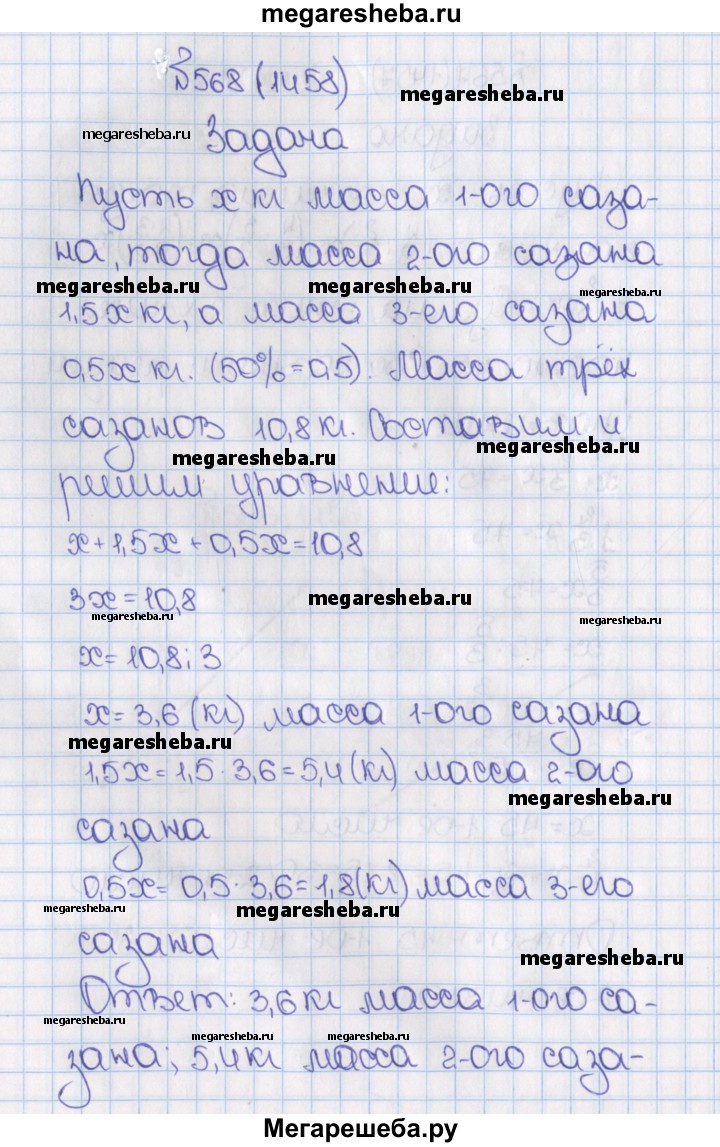 megaresheba.ru
№568 (1458)
megaresheba.ru
megaresheba.ru
Задача
Пусть x кг масса 1-ого саза-
на, тогда масса 2-ого сазана
megaresheba.ru megaresheba.ru megaresheba.ru
1,5x кг, а масса 3-его сазана
0,5x кг. (50%=0,5). Масса трёх
сазанов 10,8 кг. Составим и
megaresheba.ru megaresheba.ru
решим уравнение:
x+1,5x+0,5x=10,8
3x=10,8 megaresheba.ru
megaresheba.ru megaresheba.ru
x=10,8:3
x=3,6 (кг) масса 1-ого сазана
megaresheba.ru
1,5x=1,5·3,6=5,4(кг) масса 2-ого
megaresheba.ru
сазана
0,5x=0,5·3,6=1,8(кг) масса 3-его
megaresheba.ru megaresheba.ru
сазана
megaresheba.ru
Ответ: 3,6 кг масса 1-ого са-
megaresheba.ru megaresheba.ru megaresheba.ru
зана; 5,4 кг масса 2-ого саза-
Мегарешеба.ру